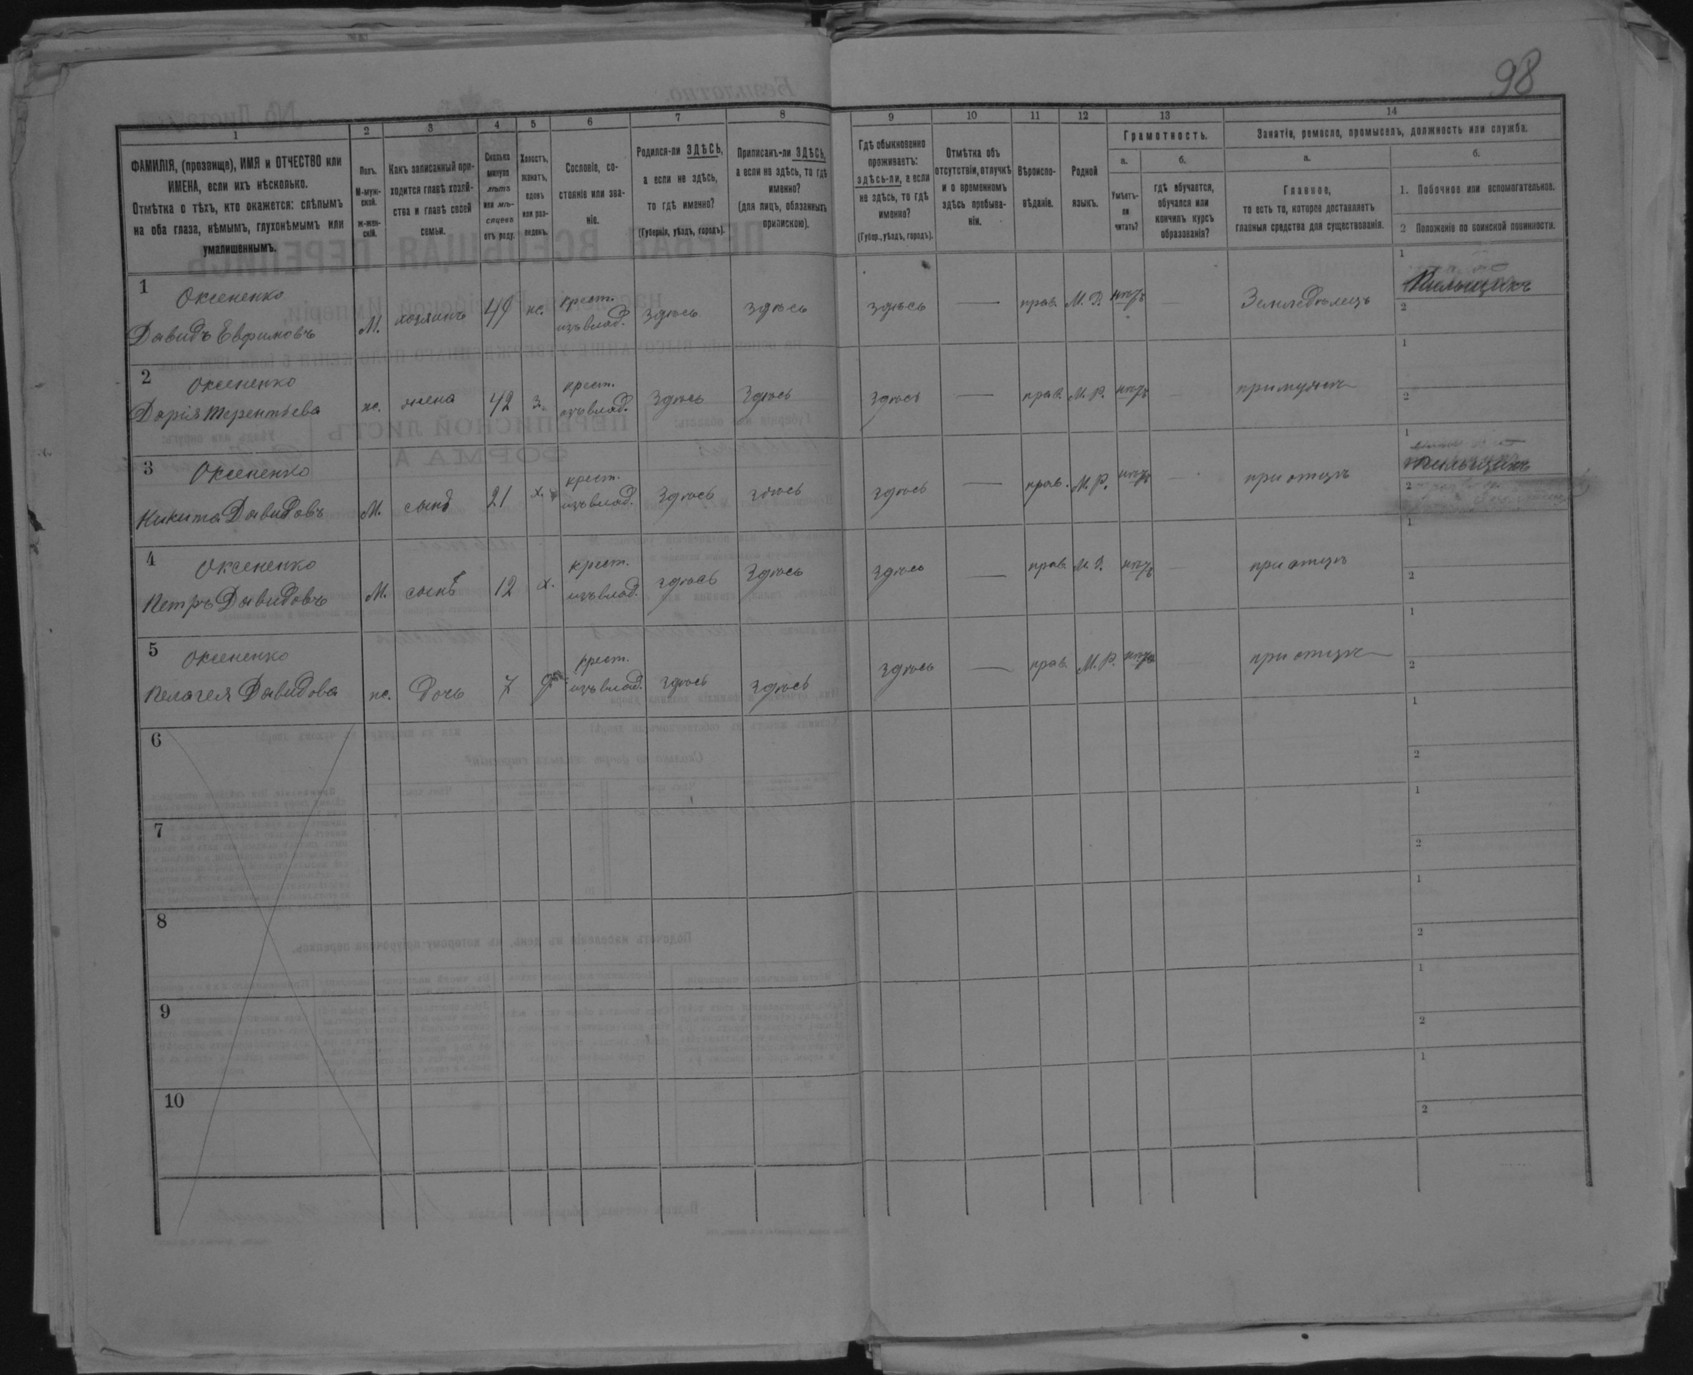 98
1 2 3 4 5 6 7 8 9 10 11 12 13 14
ФАМИЛІЯ, (прозвище), ИМЯ и ОТЧЕСТВО или
ИМЕНА, если ихъ нѣсколько.
Отмѣтка о тѣхъ, кто окажется: слѣпымъ
на оба глаза, нѣмымъ, глухонѣмымъ или
умалишеннымъ.
Полъ.
М-муж-
ской.
ж-жен-
скій.
Какъ записанный при-
ходится главѣ хозяй-
ства и главѣ своей
семьи.
Сколько
минуло
лѣтъ
или мѣ-
сяцевъ
отъ роду.
Холостъ,
женатъ,
вдовъ
или раз-
веденъ.
Сословіе, со-
стояніе или зва-
ніе.
Родился-ли ЗДѢСЬ,
а если не здѣсь,
то гдѣ именно?
(Губернія, уѣздъ, городъ).
Приписанъ-ли ЗДѢСЬ,
а если не здѣсь, то гдѣ
именно?
(для лицъ, обязанныхъ
припискою).
Гдѣ обыкновенно
проживаетъ:
здѣсь-ли, а если
не здѣсь, то гдѣ
именно?
(Губер., уѣздъ, городъ).
Отмѣтка объ
отсутствіи, отлучкѣ
и о временномъ
здѣсь пребыва-
ніи.
Вѣроиспо-
вѣданіе.
Родной
языкъ.
Грамотность.
а.
Умѣетъ-
ли
читать?
б.
гдѣ обучается,
обучался или
кончилъ курсъ
образованія?
Занятіе, ремесло, промыселъ, должность или служба.
а.
Главное,
то есть то, которое доставляетъ
главныя средства для существованія.
б.
1. Побочное или вспомогательное.
2 Положеніе по воинской повинности.
1
Оксененко
Давидъ Евфимовъ
М. хозяинъ 49 ж. крест.
изъ влад. здѣсь здѣсь здѣсь — прав. М. Р. нѣтъ — Земледѣлецъ
1
2
2
Оксененко
Дарія Терентьева
ж. жена 42 з. крест.
изъ влад. Здѣсь Здѣсь здѣсь — прав. М. Р. нѣтъ — при мужѣ
1
2
3
Оксененко
Никита Давидовъ
М. сынъ 21 х. крест.
изъ влад. Здѣсь здѣсь здѣсь — прав. М. Р. нѣтъ — при отцѣ
1
2
4
Оксененко
Петръ Давидовъ
М. сынъ 12 х. крест.
изъ влад. здѣсь Здѣсь здѣсь — прав. М. Р. нѣтъ — при отцѣ
1
2
5
Оксененко
Пелагея Давидова
ж. дочь 7 крест.
изъ влад. здѣсь здѣсь здѣсь — прав. М. Р. нѣтъ при отцѣ
1
2
6
1
2
7
1
2
8
1
2
9
1
2
10
1
2